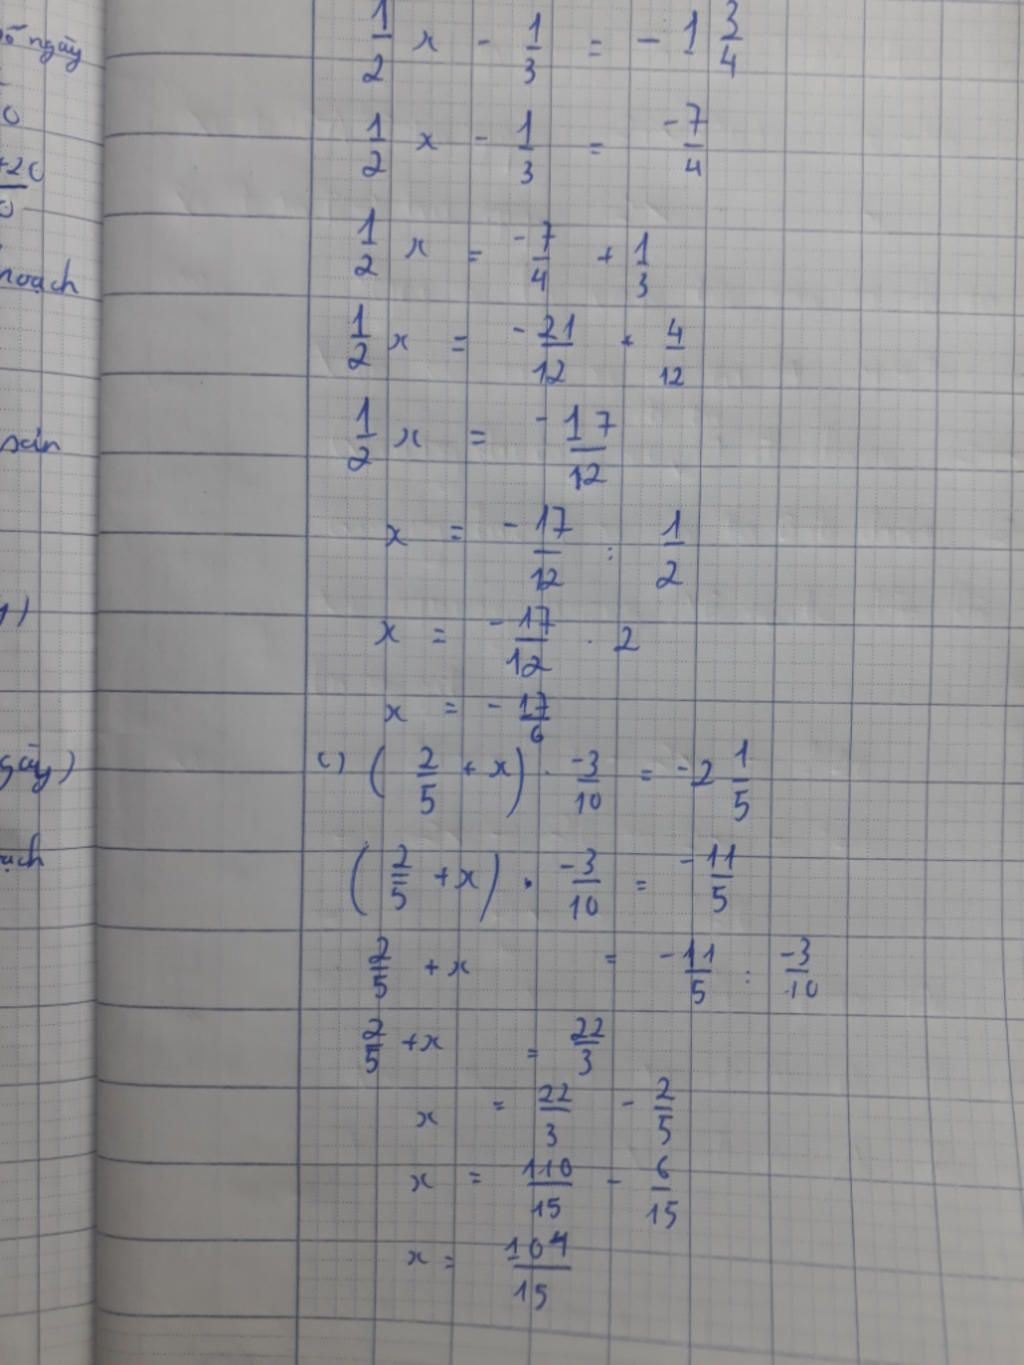 ngày
0
+20
0
hoạch
sản
y)
gày)
ạch
1/2 x - 1/3 = - 1 3/4
1/2 x - 1/3 = -7/4
1/2 x = -7/4 + 1/3
1/2 x = -21/12 + 4/12
1/2 x = -17/12
x = -17/12 : 1/2
x = -17/12 . 2
x = -17/6
c) (2/5 + x) . -3/10 = -2 1/5
(2/5 + x) . -3/10 = -11/5
2/5 + x = -11/5 : -3/10
2/5 + x = 22/3
x = 22/3 - 2/5
x = 110/15 - 6/15
x = 104/15